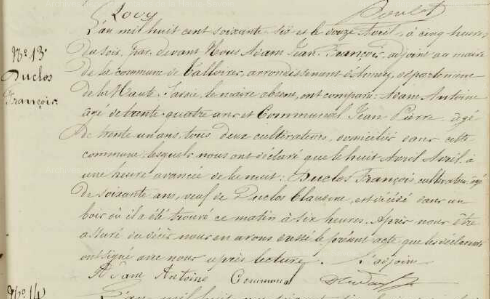 Lovy
L'an mil huit cent soixante six et le douze Avril, à cinq heures
Nº 13
du soir, par devant Nous Adam Jean François, adjoint au maire
Duclos
de la commune de Valloires, arrondissement d'Annecy, département
François
de la Haute Savoie le maire absent, ont comparu: Adam Antoine
agé de trente quatre ans et Communal Jean Pierre agé
de trente un ans, tous deux cultivateurs, domiciliés dans cette
commune lesquels nous ont déclaré que le huit Avril
a une heure avancée de la nuit: Duclos François, cultivateur agé
de soixante ans, veuf de Duclos Claudea, est décédé dans un
bois où il a été trouvé ce matin à six heures. Après nous être
assuré du décès, nous en avons dressé le présent acte que les déclarants
ont signé avec nous après lecture. L'adjoint
Adam Antoine Communal
Nº 14
L'an mil huit